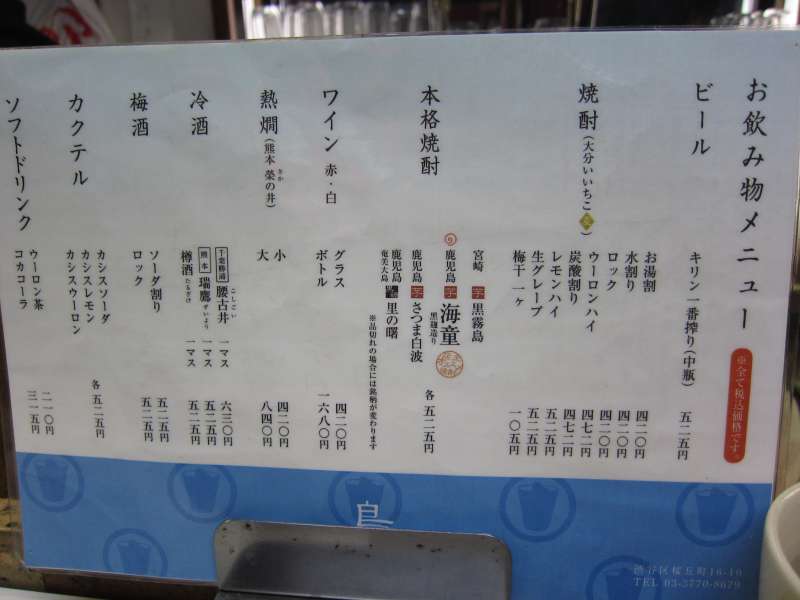 お飲み物メニュー
※全て税込価格です。
ビール
キリン一番搾り(中瓶) 五二五円
焼酎(大分いいちこ 麦)
お湯割 四二〇円
水割り 四二〇円
ロック 四二〇円
ウーロンハイ 四七二円
炭酸割り 四七二円
レモンハイ 五二五円
生グレープ 五二五円
梅干一ヶ 一〇五円
本格焼酎
宮崎 芋 黒霧島
鹿児島 芋 海童 黒麹造り
鹿児島 芋 さつま白波
鹿児島 奄美大島 里の曙
各 五二五円
※品切れの場合には銘柄が変わります
ワイン 赤・白
グラス 四二〇円
ボトル 一六八〇円
熱燗(熊本 栄の井) さか
小 四二〇円
大 八四〇円
冷酒
千葉勝浦 腰古井 こしごい 一マス 六三〇円
熊本 瑞鷹 ずいよう 一マス 五二五円
樽酒 たるざけ 一マス 五二五円
梅酒
ソーダ割り 五二五円
ロック 五二五円
カクテル
カシスソーダ
カシスレモン
カシスウーロン
各 五二五円
ソフトドリンク
ウーロン茶 二一〇円
コカコーラ 三一五円
渋谷区桜丘町16-10
TEL 03-3770-8679